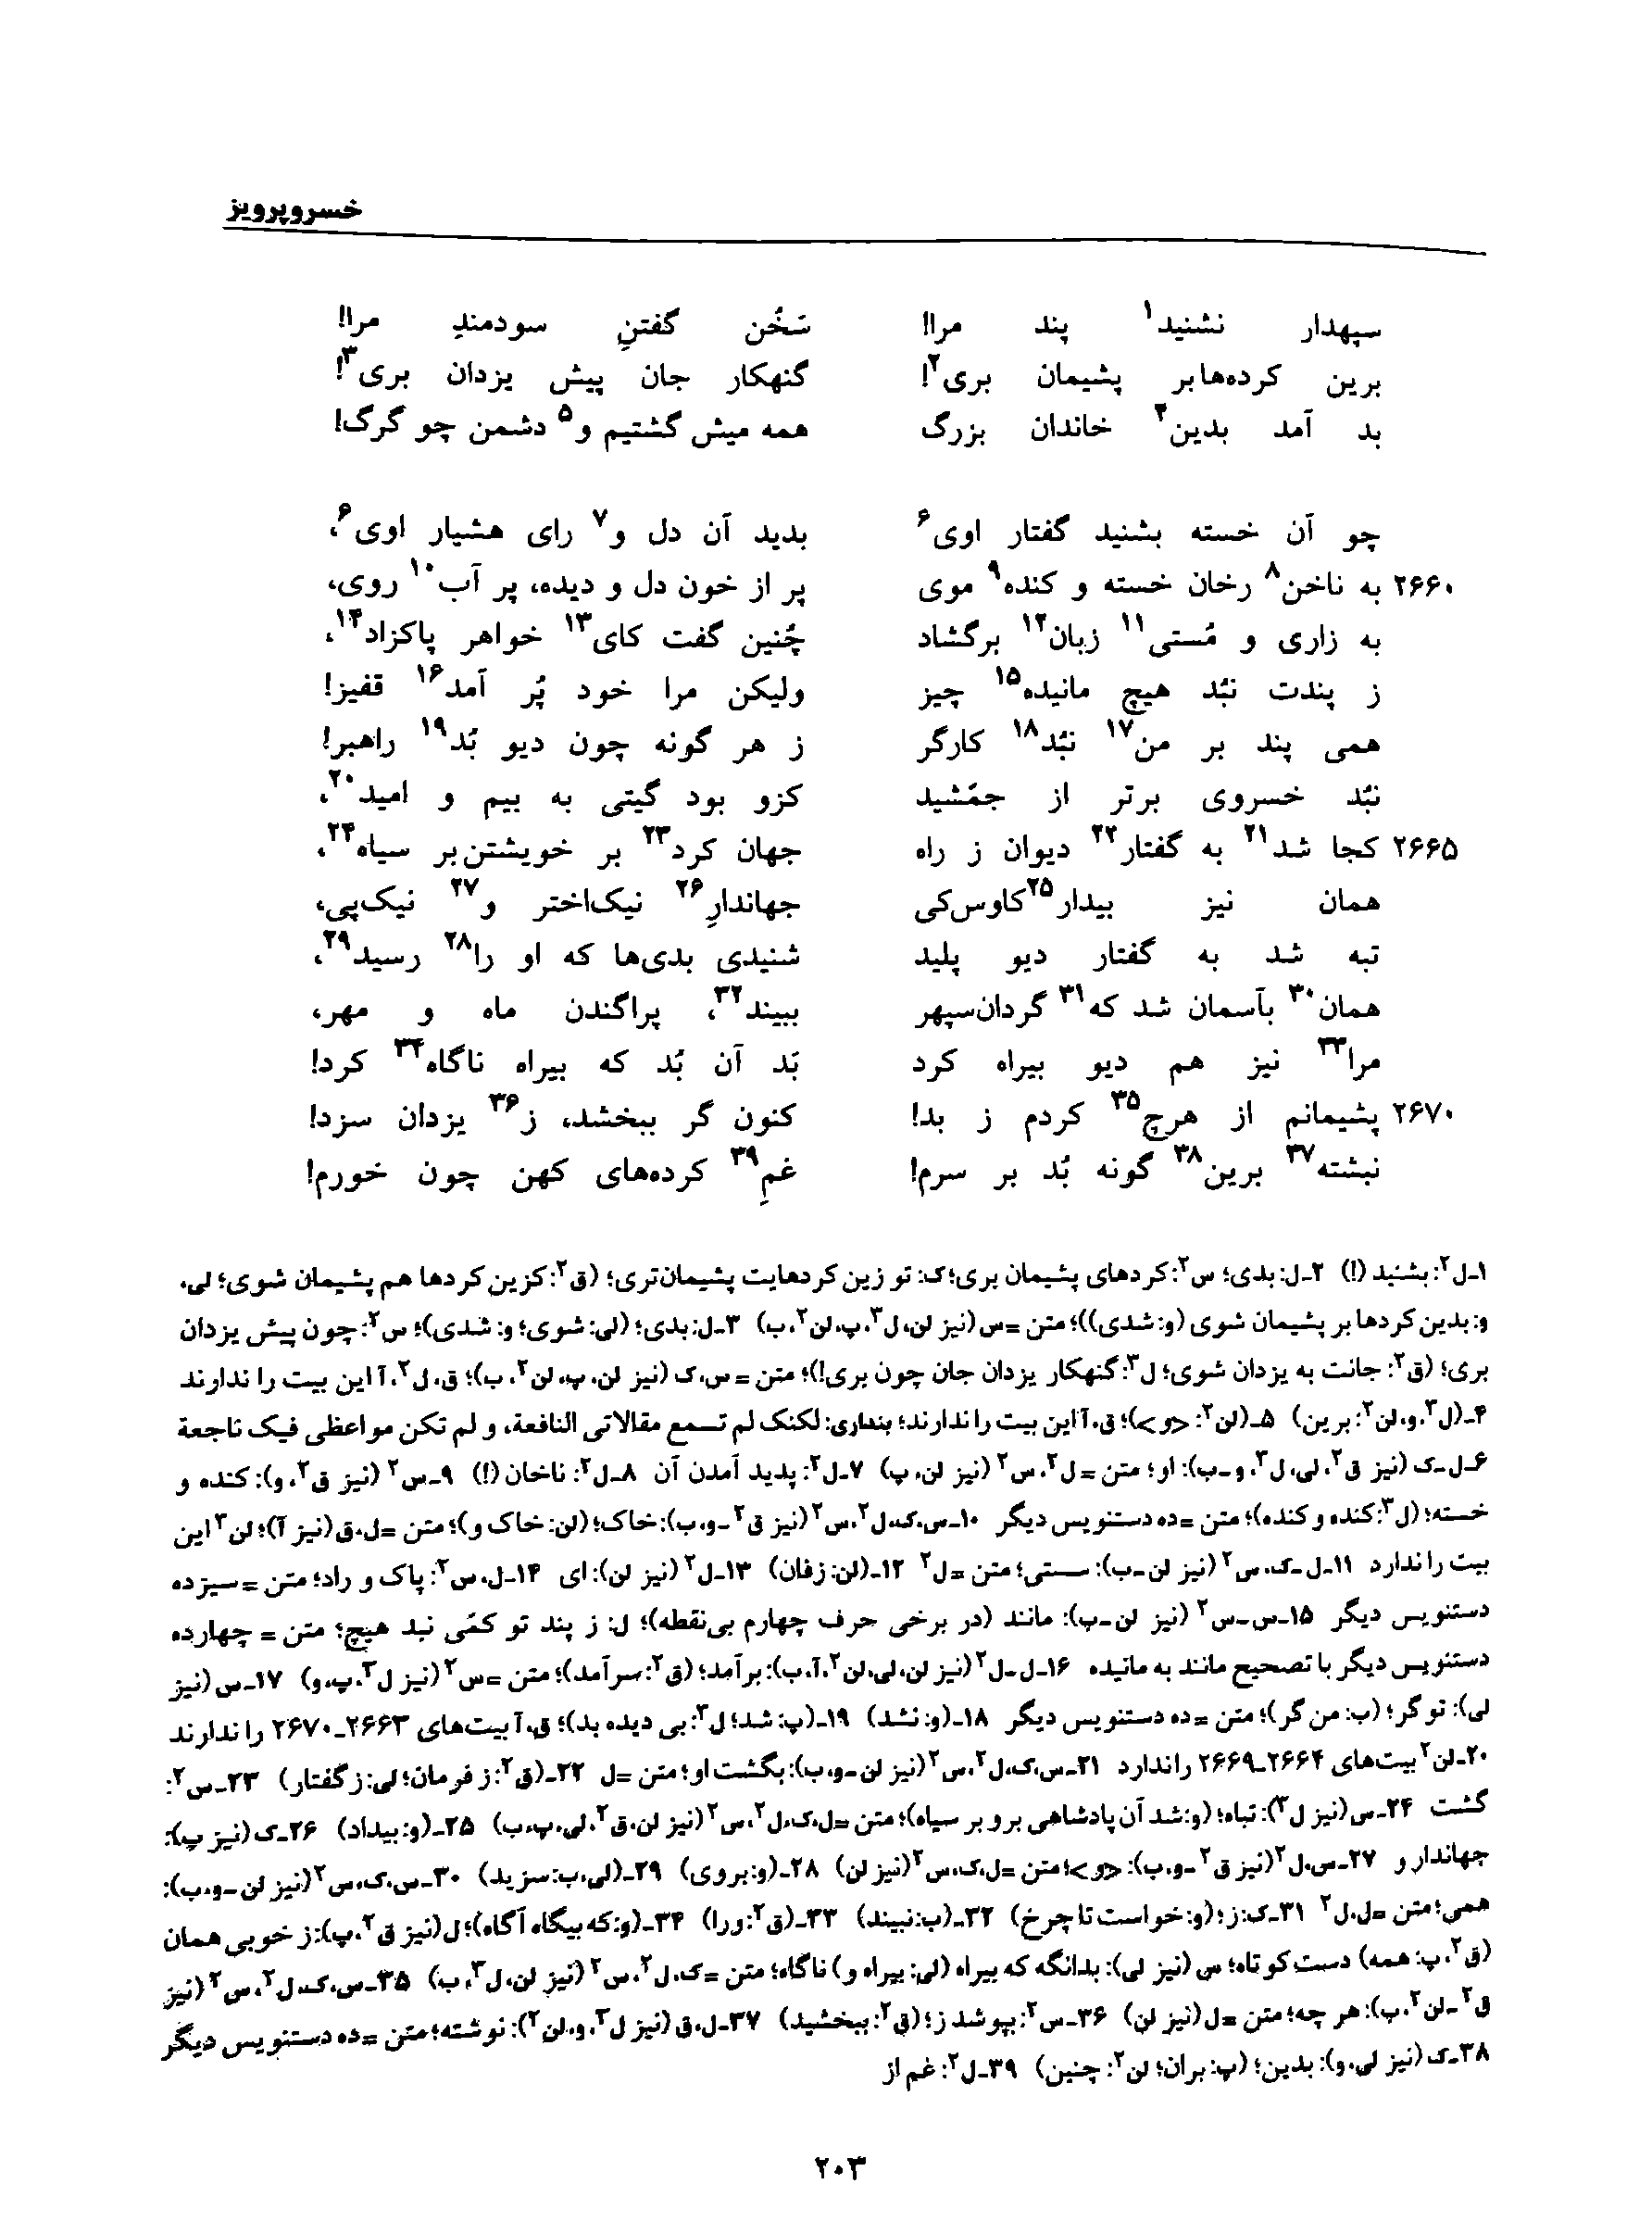 خسروپرویز
سپهدار نشنید۱ پند مرا! سَخُن گفتنِ سودمندِ مرا!
برین کرده‌هابر پشیمان بری۲! گنهکار جان پیش یزدان بری۳!
بد آمد بدین۴ خاندان بزرگ همه میش گشتیم و۵ دشمن چو گرگ!
چو آن خسته بشنید گفتار اوی۶ بدید آن دل و۷ رای هشیار اوی۶،
۲۶۶۰ به ناخن۸ رخان خسته و کنده۹ موی پر از خون دل و دیده، پر آب۱۰ روی،
به زاری و مُستی۱۱ زبان۱۲ برگشاد چُنین گفت کای۱۳ خواهر پاکزاد۱۴،
ز پندت نبُد هیچ مانیده۱۵ چیز ولیکن مرا خود پُر آمد۱۶ قفیز!
همی پند بر من۱۷ نبُد۱۸ کارگر ز هر گونه چون دیو بُد۱۹ راهبر!
نبُد خسروی برتر از جمّشید کزو بود گیتی به بیم و امید۲۰،
۲۶۶۵ کجا شد۲۱ به گفتار۲۲ دیوان ز راه جهان کرد۲۳ بر خویشتن‌بر سیاه۲۴،
همان نیز بیدار۲۵ کاوس‌کی جهاندارِ۲۶ نیک‌اختر و۲۷ نیک‌پی،
تبه شد به گفتار دیو پلید شنیدی بدی‌ها که او را۲۸ رسید۲۹،
همان۳۰ بآسمان شد که۳۱ گردان‌سپهر ببیند۳۲، پراگندن ماه و مهر،
مرا۳۳ نیز هم دیو بیراه کرد بَد آن بُد که بیراه ناگاه۳۴ کرد!
۲۶۷۰ پشیمانم از هرچ۳۵ کردم ز بد! کنون گر ببخشد، ز۳۶ یزدان سزد!
نبشته۳۷ برین۳۸ گونه بُد بر سرم! غمِ۳۹ کرده‌های کهن چون خورم!
۱-ل۲: بشنید (!) ۲-ل: بدی؛ س۲: کردهای پشیمان بری؛ ک: تو زین کردهایت پشیمان‌تری؛ (ق۲: کزین کردها هم پشیمان شوی؛ لی،
و: بدین کردها بر پشیمان شوی (و: شدی))؛ متن =س (نیز لن، ل۳، پ، لن۲، ب) ۳-ل: بدی؛ (لی: شوی؛ و: شدی)؛ س۲: چون پیش یزدان
بری؛ (ق۲: جانت به یزدان شوی؛ ل۳: گنهکار یزدان جان چون بری!)؛ متن = س، ک (نیز لن، پ، لن۲، ب)؛ ق، ل۲، آ این بیت را ندارند
۴-(ل۳، و، لن۲: برین) ۵-(لن۲: <و>)؛ ق، آ این بیت را ندارند؛ بنداری: لکنک لم تسمع مقالاتی النافعة، و لم تکن مواعظی فیک ناجعة
۶-ل-ک (نیز ق۲، لی، ل۳، و-ب): او؛ متن = ل۲، س۲ (نیز لن، پ) ۷-ل۲: پدید آمدن آن ۸-ل۲: ناخان (!) ۹-س۲ (نیز ق۲، و): کنده و
خسته؛ (ل۳: کنده و کنده)؛ متن =ده دستنویس دیگر ۱۰-س، ک، ل۲، س۲ (نیز ق۲-و، ب): خاک؛ (لن: خاک و)؛ متن =ل، ق (نیز آ)؛ لن۲ این
بیت را ندارد ۱۱-ل-ک، س۲ (نیز لن-ب): سستی؛ متن =ل۲ ۱۲-(لن: زفان) ۱۳-ل۲ (نیز لن): ای ۱۴-ل، س۲: پاک و راد؛ متن =سیزده
دستنویس دیگر ۱۵-س-س۲ (نیز لن-ب): مانند (در برخی حرف چهارم بی‌نقطه)؛ ل: ز پند تو کمّی نبد هیچ؛ متن = چهارده
دستنویس دیگر با تصحیح مانند به مانیده ۱۶-ل-ل۲ (نیز لن، لی، لن۲، آ، ب): برآمد؛ (ق۲: سرآمد)؛ متن =س۲ (نیز ل۳، پ، و) ۱۷-س (نیز
لی): تو گر؛ (ب: من گر)؛ متن =ده دستنویس دیگر ۱۸-(و: نشد) ۱۹-(پ: شد؛ ل۳: بی دیده بد)؛ ق، آ بیت‌های ۲۶۶۳-۲۶۷۰ را ندارند
۲۰-لن۲ بیت‌های ۲۶۶۴-۲۶۶۹ را ندارد ۲۱-س، ک، ل۲، س۲ (نیز لن-و، ب): بگشت او؛ متن =ل ۲۲-(ق۲: ز فرمان؛ لی: ز گفتار) ۲۳-س۲:
گشت ۲۴-س (نیز ل۳): تباه؛ (و: شد آن پادشاهی برو بر سیاه)؛ متن =ل، ک، ل۲، س۲ (نیز لن، ق۲، لی، پ، ب) ۲۵-(و: بیداد) ۲۶-ک (نیز پ):
جهاندار و ۲۷-س، ل۲ (نیز ق۲-و، ب): <و>؛ متن =ل، ک، س۲ (نیز لن) ۲۸-(و: بروی) ۲۹-(لی، ب: سزید) ۳۰-س، ک، س۲ (نیز لن-و، ب):
همی؛ متن =ل، ل۲ ۳۱-ک: ز؛ (و: خواست تا چرخ) ۳۲-(ب: نبیند) ۳۳-(ق۲: ورا) ۳۴-(و: که بیگاه آگاه)؛ ل (نیز ق۲، پ): ز خوبی همان
(ق۲، پ: همه) دست کوتاه؛ س (نیز لی): بدانگه که بیراه (لی: بیراه و) ناگاه؛ متن =ک، ل۲، س۲ (نیز لن، ل۳، ب) ۳۵-س، ک، ل۲، س۲ (نیز
ق۲-لن۲، ب): هر چه؛ متن =ل (نیز لن) ۳۶-س۲: بپوشد ز؛ (ق۲: ببخشید) ۳۷-ل، ق (نیز ل۳، و، لن۲): نوشته؛ متن =ده دستنویس دیگر
۳۸-ک (نیز لی، و): بدین؛ (پ: بران؛ لن۲: چنین) ۳۹-ل۲: غم از
۲۰۳